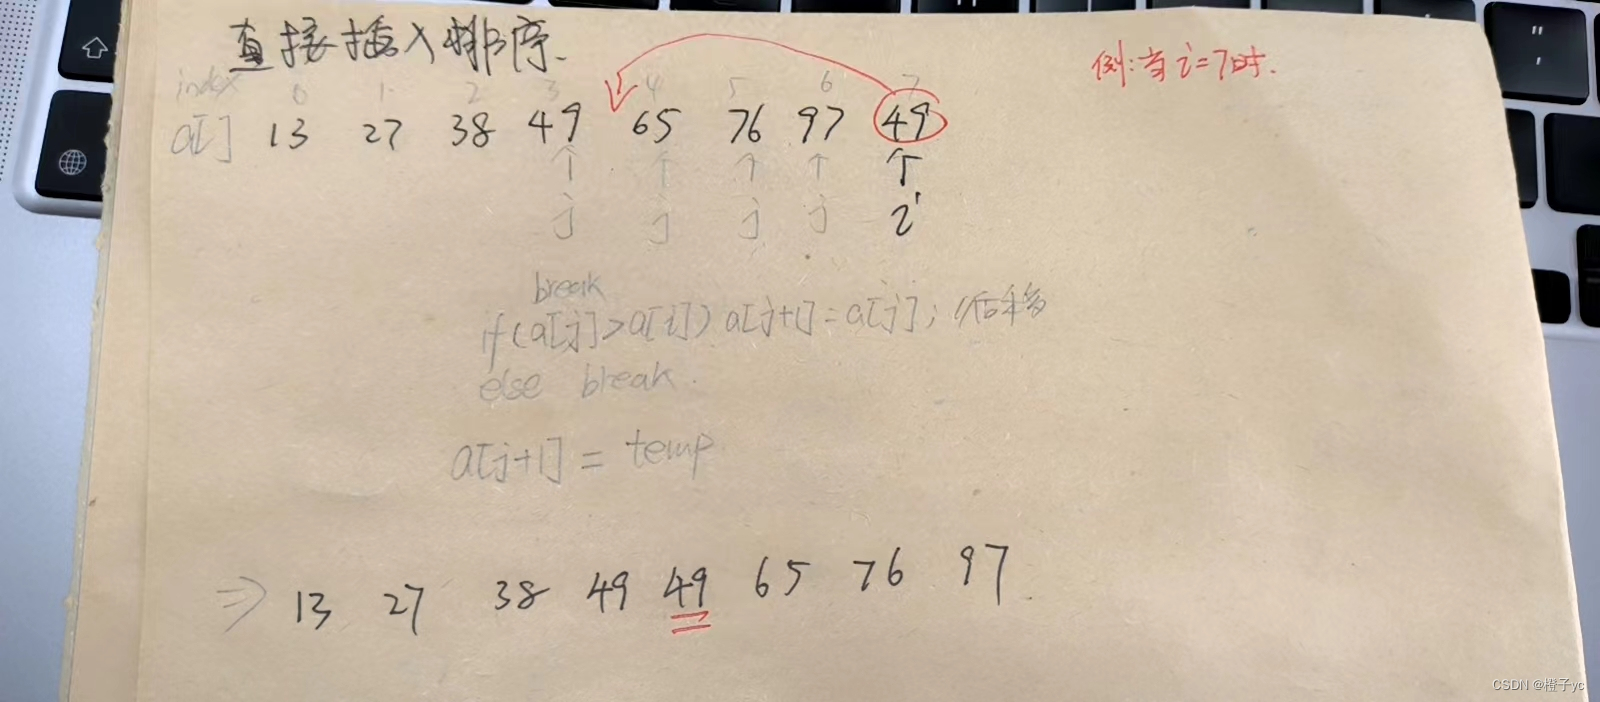 直接插入排序.
例:当i=7时.
index 0 1 2 3 4 5 6 7
a[] 13 27 38 49 65 76 97 49
↑ ↑ ↑ ↑ ↑
j j j j i
break
if(a[j]>a[i]) a[j+1]=a[j]; //后移
else break.
a[j+1] = temp
⇒ 13 27 38 49 49 65 76 97.
CSDN @橙子yc